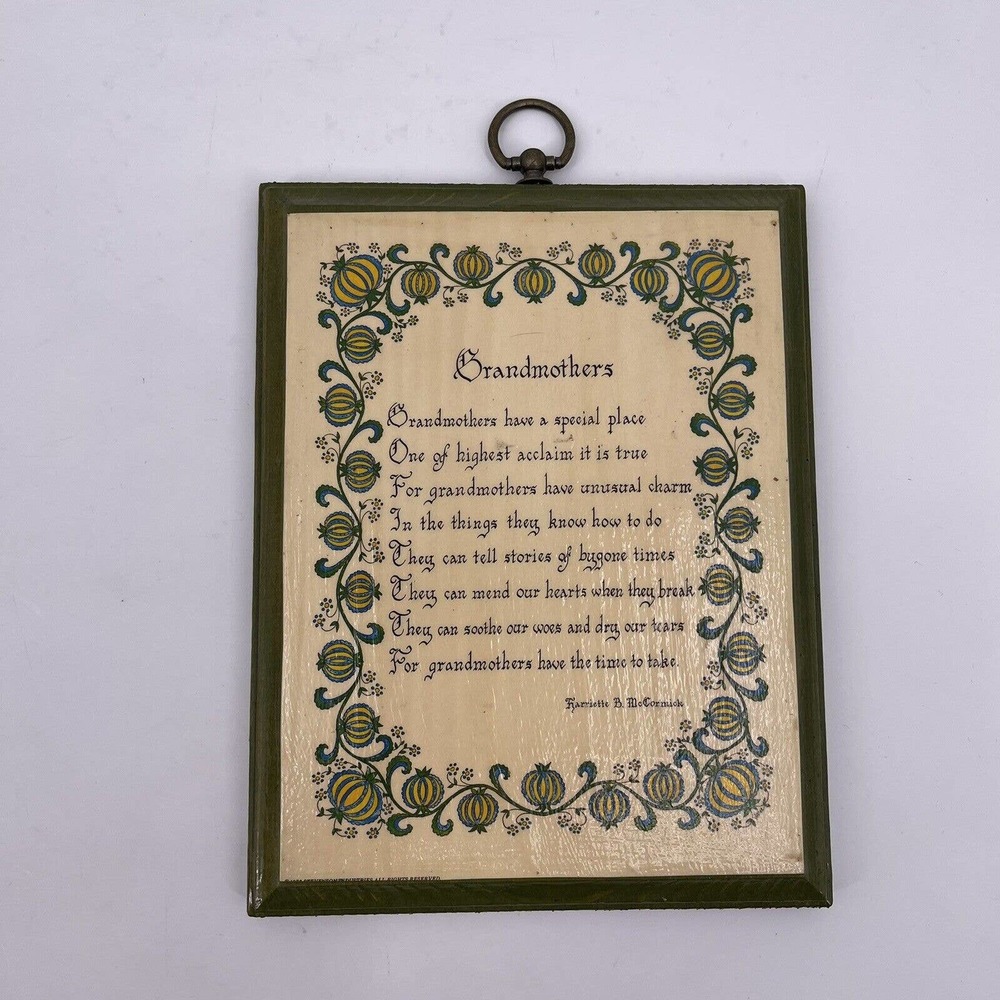 Grandmothers
Grandmothers have a special place
One of highest acclaim it is true
For grandmothers have unusual charm
In the things they know how to do
They can tell stories of bygone times
They can mend our hearts when they break
They can soothe our woes and dry our tears
For grandmothers have the time to take.
Harriette B. McCormick
INDUSTRIES ALL RIGHTS RESERVED